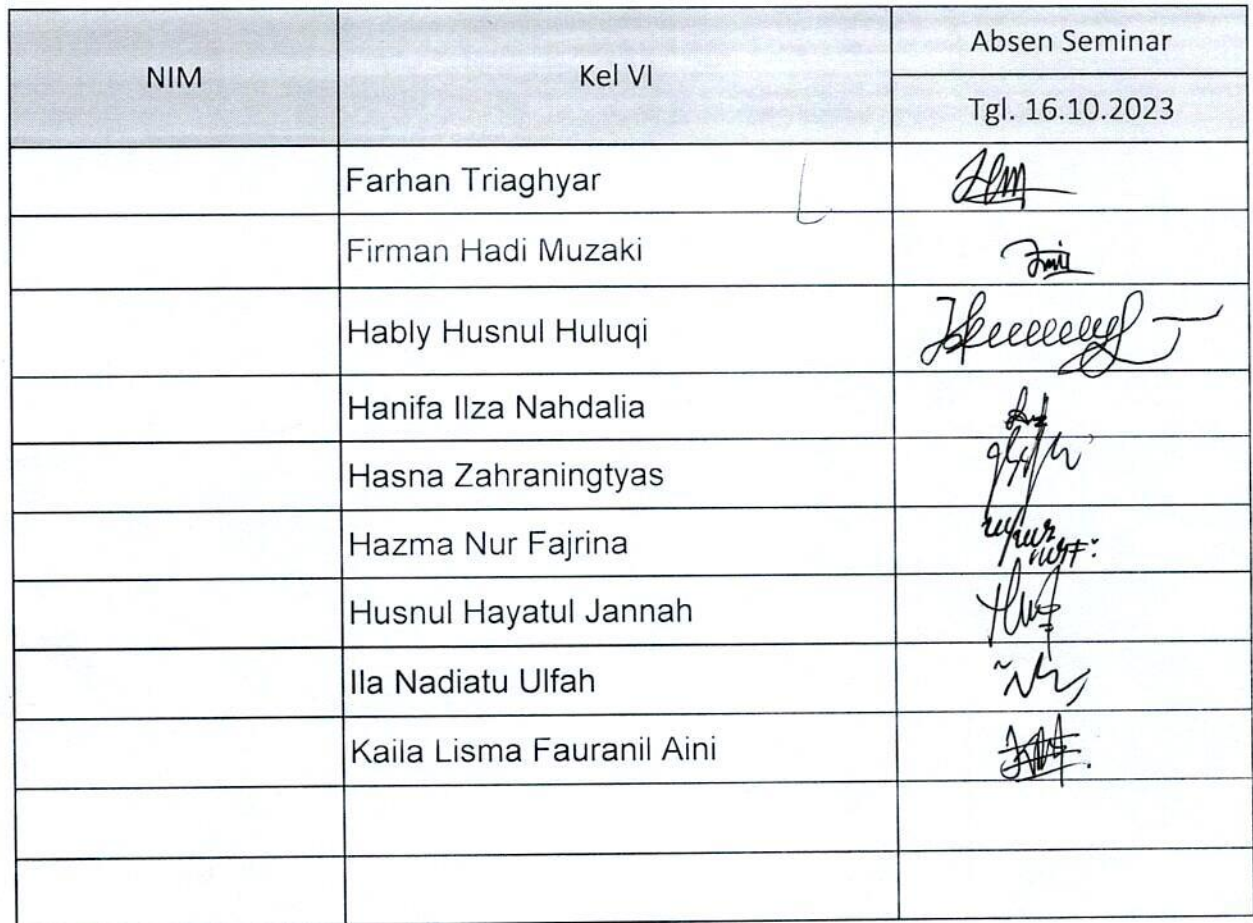 NIM
Kel VI
Absen Seminar
Tgl. 16.10.2023
Farhan Triaghyar
Firman Hadi Muzaki
Hably Husnul Huluqi
Hanifa Ilza Nahdalia
Hasna Zahraningtyas
Hazma Nur Fajrina
Husnul Hayatul Jannah
Ila Nadiatu Ulfah
Kaila Lisma Fauranil Aini